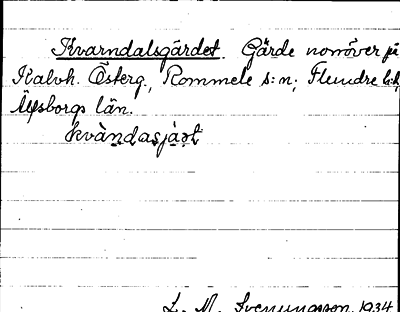 Kvarndalsgärdet. Gärde norröver på
Kalvh. Österg., Rommele s:n; Flundre hd,
Älvsborgs län.
kvàndasjàṣt
L. M. Svenungsson 1934